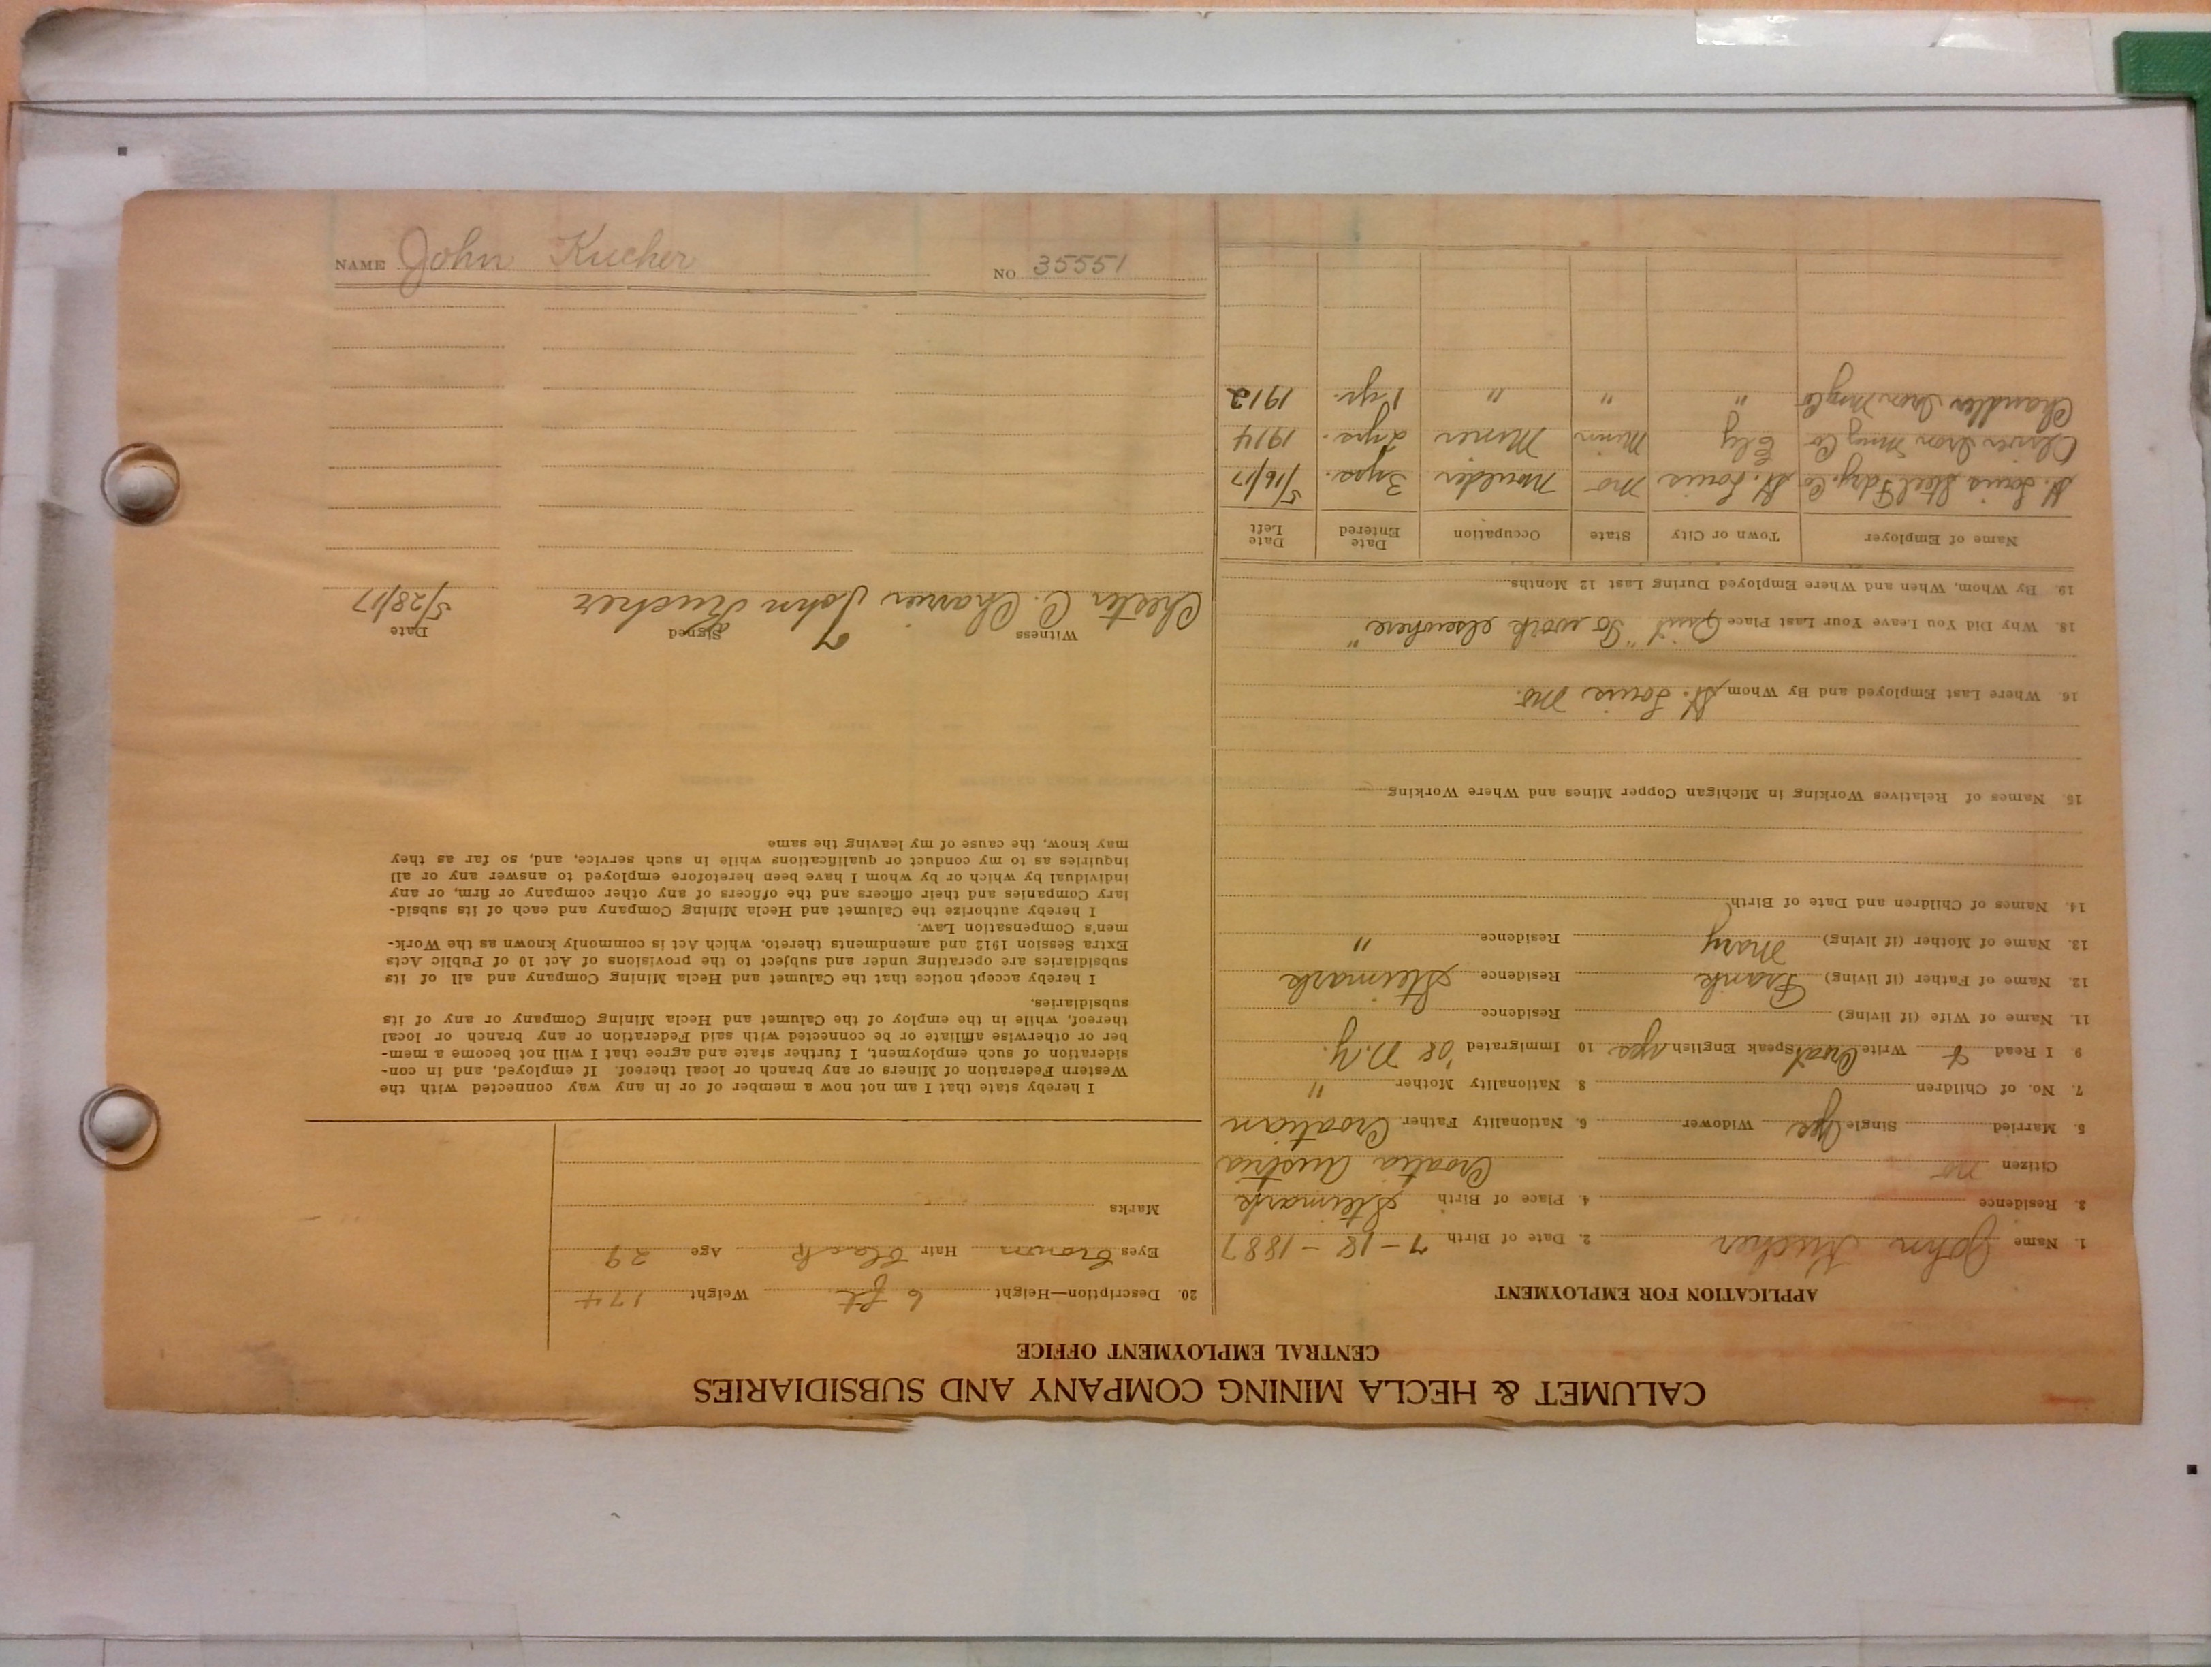 CALUMET & HECLA MINING COMPANY AND SUBSIDIARIES
CENTRAL EMPLOYMENT OFFICE
APPLICATION FOR EMPLOYMENT
1. Name John Kucher 2. Date of Birth 7-18-1887
3. Residence 4. Place of Birth Steimark
Citizen no Croatia Austria
5. Married Single yes Widower 6. Nationality Father Croatian
7. No. of Children 8. Nationality Mother "
9 I Read & Write Croat Speak English yes 10 Immigrated '08 N.Y.
11. Name of Wife (if living) Residence
12. Name of Father (if living) Frank Residence Steimark
13. Name of Mother (if living) Mary Residence "
14. Names of Children and Date of Birth
15. Names of Relatives Working in Michigan Copper Mines and Where Working
16. Where Last Employed and By Whom St. Louis Mo.
18. Why Did You Leave Your Last Place Quit "To work elsewhere"
19. By Whom, When and Where Employed During Last 12 Months
Name of Employer Town or City State Occupation Date Entered Date Left
St. Louis Steel Fdry. Co St. Louis Mo Moulder 3 yrs. 5/16/17
Oliver Iron Ming Co Ely Minn Miner 2 yrs. 1914
Chandler Iron Mng Co " " " 1 yr. 1912
20. Description—Height 6 ft Weight 174
Eyes brown Hair black Age 29
Marks
I hereby state that I am not now a member of or in any way connected with the
Western Federation of Miners or any branch or local thereof. If employed, and in con-
sideration of such employment, I further state and agree that I will not become a mem-
ber or otherwise affiliate or be connected with said Federation or any branch or local
thereof, while in the employ of the Calumet and Hecla Mining Company or any of its
subsidiaries.
I hereby accept notice that the Calumet and Hecla Mining Company and all of its
subsidiaries are operating under and subject to the provisions of Act 10 of Public Acts
Extra Session 1912 and amendments thereto, which Act is commonly known as the Work-
men's Compensation Law.
I hereby authorize the Calumet and Hecla Mining Company and each of its subsid-
iary Companies and their officers and the officers of any other company or firm, or any
individual by which or by whom I have been heretofore employed to answer any or all
inquiries as to my conduct or qualifications while in such service, and, so far as they
may know, the cause of my leaving the same
Witness Signed Date
Chester C. John Kucher 5/28/17
NAME John Kucher NO. 35551